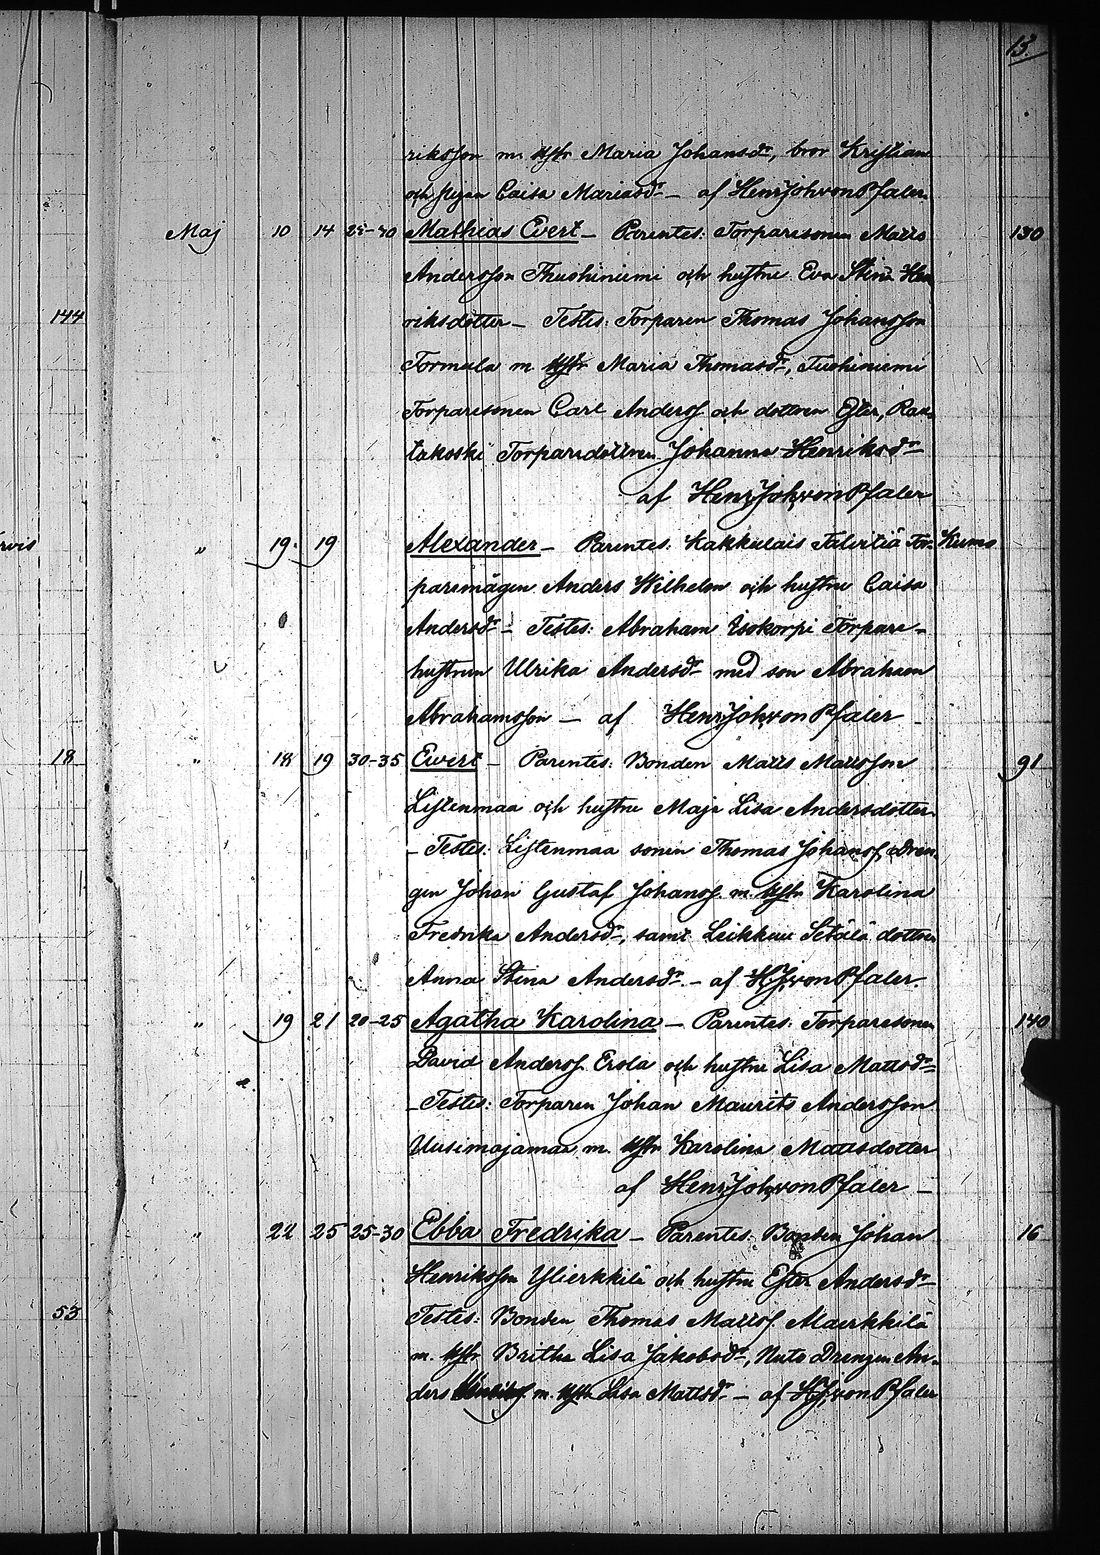 13.
riksson m. hstr Maria Johansdr, bror Kristian
och pigan Caisa Mariasdr — af Henr Joh von Pfaler
Maj 10 14 25-30 Mathias Evert — Parentes: Torparesonen Matts 130
Andersson Thuohiniemi och hustru Eva Stina Hen
144 riksdotter — Testes: Torparen Thomas Johansson
Tormula m. hstr Maria Thomasdr, Tuohiniemi
Torparesonen Carl Anderss. och dottren Ester, Rau-
takoski Torparedottren Johanna Henriksdr
af Henr Joh von Pfaler
" 19. 19 Alexander — Parentes: Kakkulais Torpare Kumo
paremågen Anders Wilhelm och hustru Caisa
Andersdr — Testes: Abraham Isokorpi Torpare-
hustrun Ulrika Andersdr med son Abraham
Abrahamsson — af Henr Joh von Pfaler —
18 " 18 19 30-35 Ewert — Parentes: Bonden Matts Mattsson 91
Listenmaa och hustru Maja Lisa Andersdotter
— Testes: Listenmaa sonen Thomas Johanss. Dren-
gen Johan Gustaf Johanss. m. hstr Karolina
Fredrika Andersdr, samt Leikkuu Setälä dottren
Anna Stina Andersdr — af HJ von Pfaler.
" 19 21 20-25 Agatha Karolina — Parentes: Torparesonen 140
David Anderss. Erola och hustru Lisa Mattsdr
— Testes: Torparen Johan Maurits Andersson
Uusimajamaa m. hstr Karolina Mattsdotter
af Henr Joh von Pfaler —
" 22 25 25-30 Ebba Fredrika — Parentes: Bonden Johan 16
Henriksson Ylierkkilä och hustru Ester Andersdr
53 Testes: Bonden Thomas Mattss. Alaerkkilä
m. hstr Britha Lisa Jakobsdr, Nuto Drengen An-
ders m. hstr Lisa Mattsdr — af HJ von Pfaler